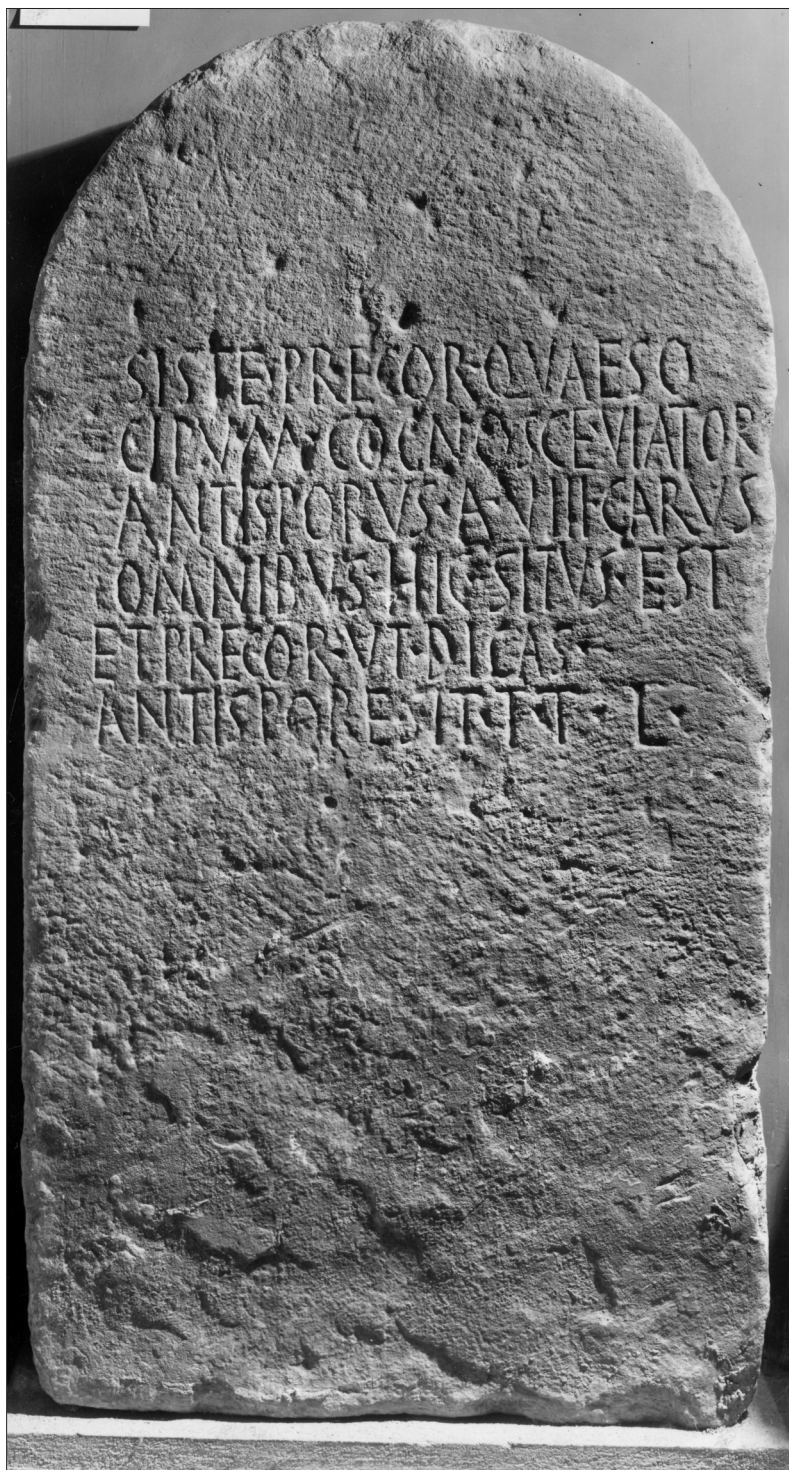 SISTE·PRECOR·QVAESO
CIPVM·COGNOSCE·VIATOR
ANTISPORVS·A·VIII·CARVS
OMNIBVS·HIC·SITVS·EST
ET·PRECOR·VT·DICAS
ANTISPORE·S·T·T·L·